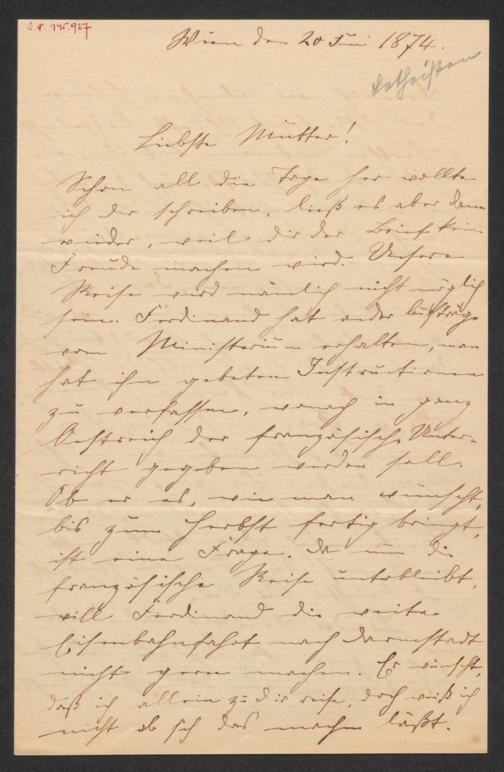 I.N. 145.927
Wien den 20 Juni 1874.
Lotheißen
Liebste Mutter!
Schon all die Tage her wollte
ich dir schreiben, ließ es aber dann
wieder, weil dir der Brief kein
Freude machen wird. Unsere
Reise wird nämlich nicht möglich
sein. Ferdinand hat andre Aufträge
vom Ministerium erhalten, man
hat ihn gebeten Instructionen
zu verfassen, wonach in ganz
Oestreich der französische Unter-
richt gegeben werden soll.
Ob er es, wie man wünscht,
bis zum Herbst fertig bringt,
ist eine Frage. Da nun die
französische Reise unterbleibt,
will Ferdinand die weite
Eisenbahnfahrt nach Darmstadt
nicht gern machen. Er wünscht,
daß ich allein zu dir reise, doch weiß ich
nicht ob sich das machen läßt.